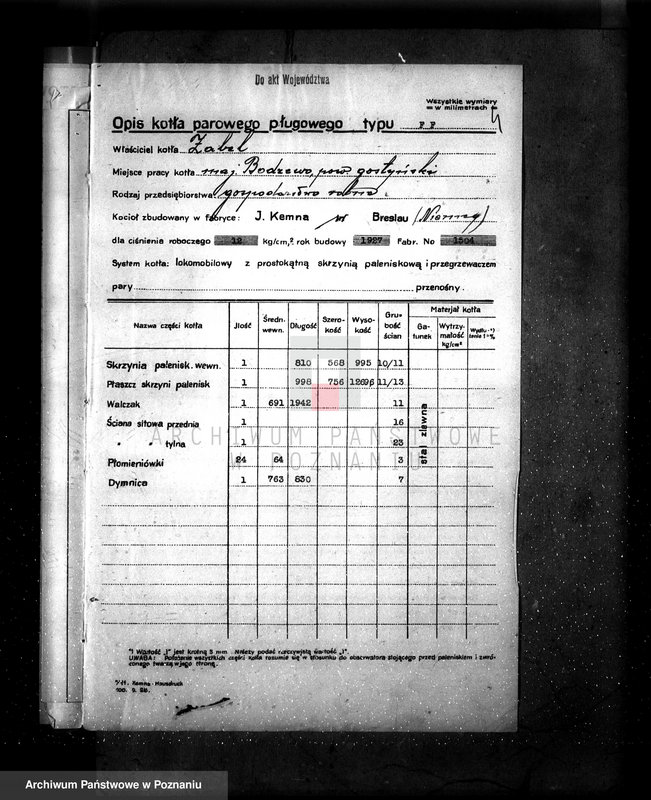 Do akt Województwa
Wszystkie wymiary
w milimetrach
Opis kotła parowego pługowego typu PP
Właściciel kotła Zabel
Miejsce pracy kotła maj. Bodzewo, pow. gostyński
Rodzaj przedsiębiorstwa gospodarstwo rolne
Kocioł zbudowany w fabryce: J. Kemna w Breslau (Niemcy)
dla ciśnienia roboczego 12 kg/cm,² rok budowy 1927 Fabr. No 1504
System kotła: lokomobilowy z prostokątną skrzynią paleniskową i przegrzewaczem
pary przenośny.
Nazwa części kotła Ilość Średn. wewn. Długość Szerokość Wysokość Grubość ścian Materjał kotła
Gatunek Wytrzymałość kg/cm²
Skrzynia palenisk. wewn. 1 810 568 995 10/11
Płaszcz skrzyni palenisk 1 998 756 12696 11/13
Walczak 1 691 1942 11
Ściana sitowa przednia 1 16
" " tylna 1 23
Płomieniówki 24 64 3
Dymnica 1 763 830 7
stal zlewna
ARCHIWUM PAŃSTWOWE
W POZNANIU
*) Wartość „l” jest krotną 5 mm. Należy podać rzeczywistą wartość „l”.
UWAGA: Położenie wszystkich części kotła rozumie się w stosunku do obserwatora stojącego przed paleniskiem i zwróconego twarzą w jego stronę.
Kemna - Hausdruck
100. 9. 26.
Archiwum Państwowe w Poznaniu